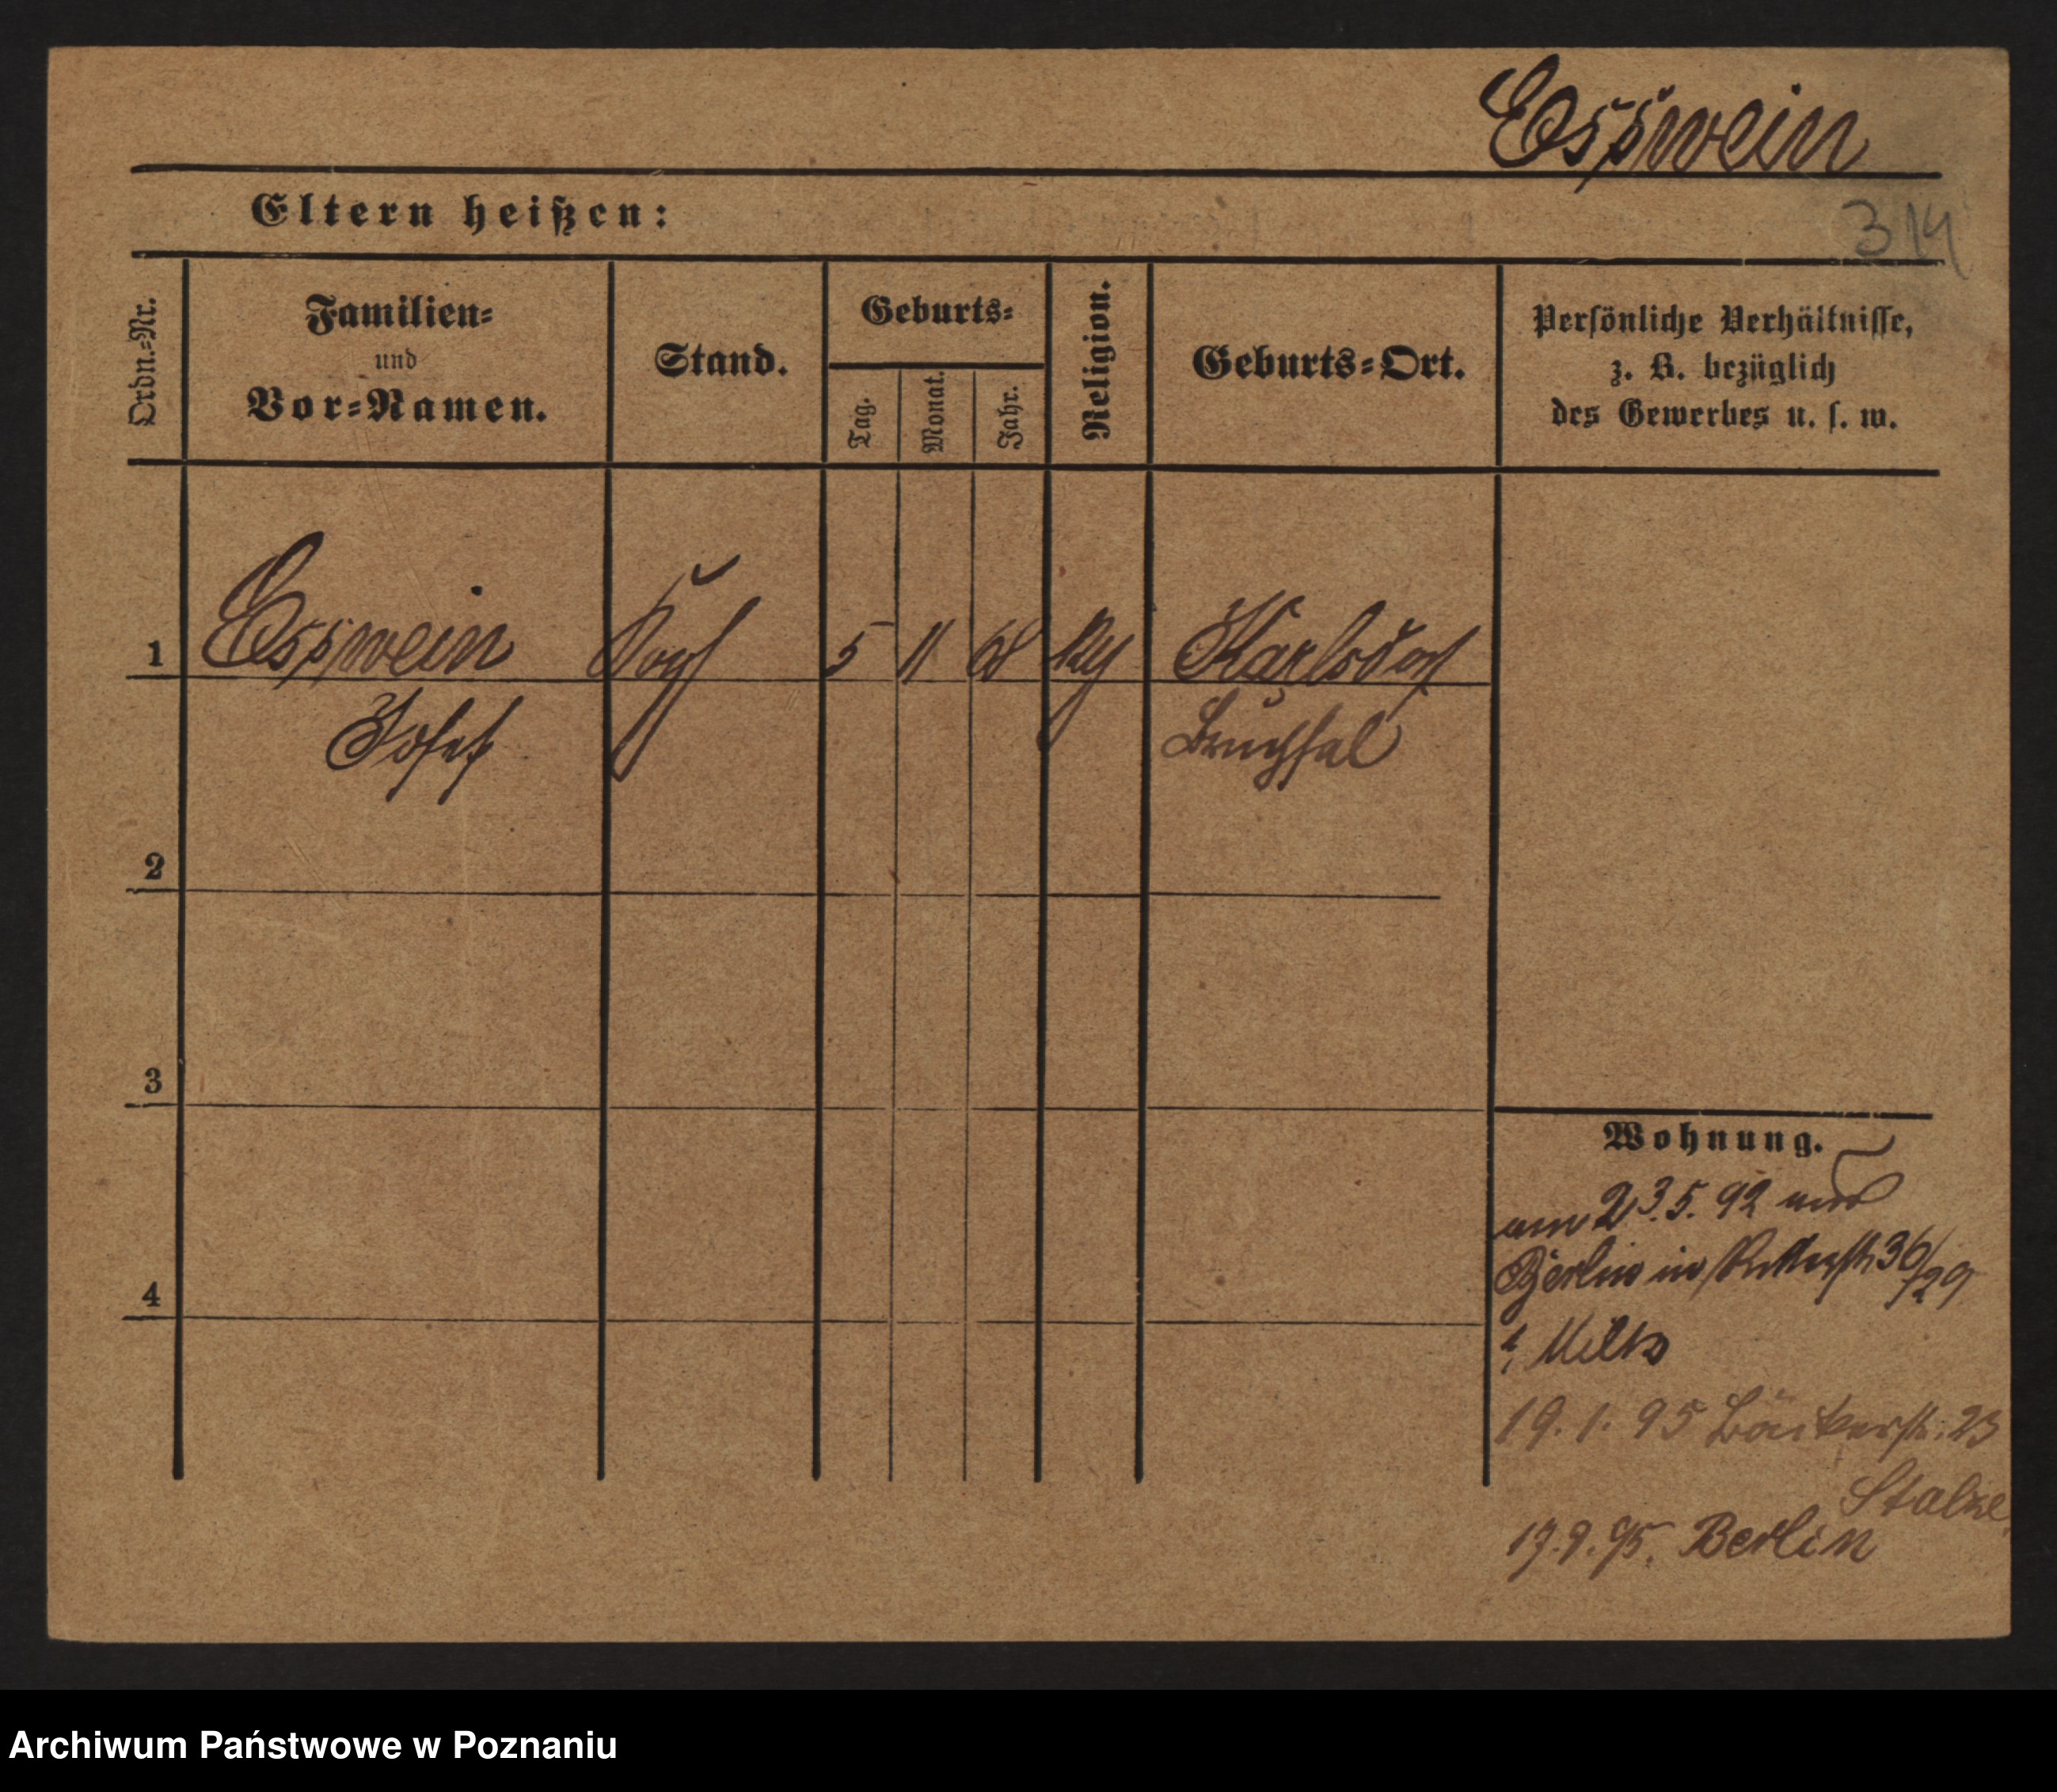 Esswein
314
Eltern heißen:
Ordn.-Nr.
Familien-
und
Vor-Namen.
Stand.
Geburts-
Tag.
Monat.
Jahr.
Religion.
Geburts-Ort.
Persönliche Verhältnisse,
z. B. bezüglich
des Gewerbes u. s. w.
1 Esswein 5 11 68 Karlsdorf
Josef Bruchsal
2
3
4
Wohnung.
am 23.5.92 aus
Berlin in Ritterstr 36/29
19.1.95 Bäckerstr: 23
17.9.95. Berlin
Archiwum Państwowe w Poznaniu